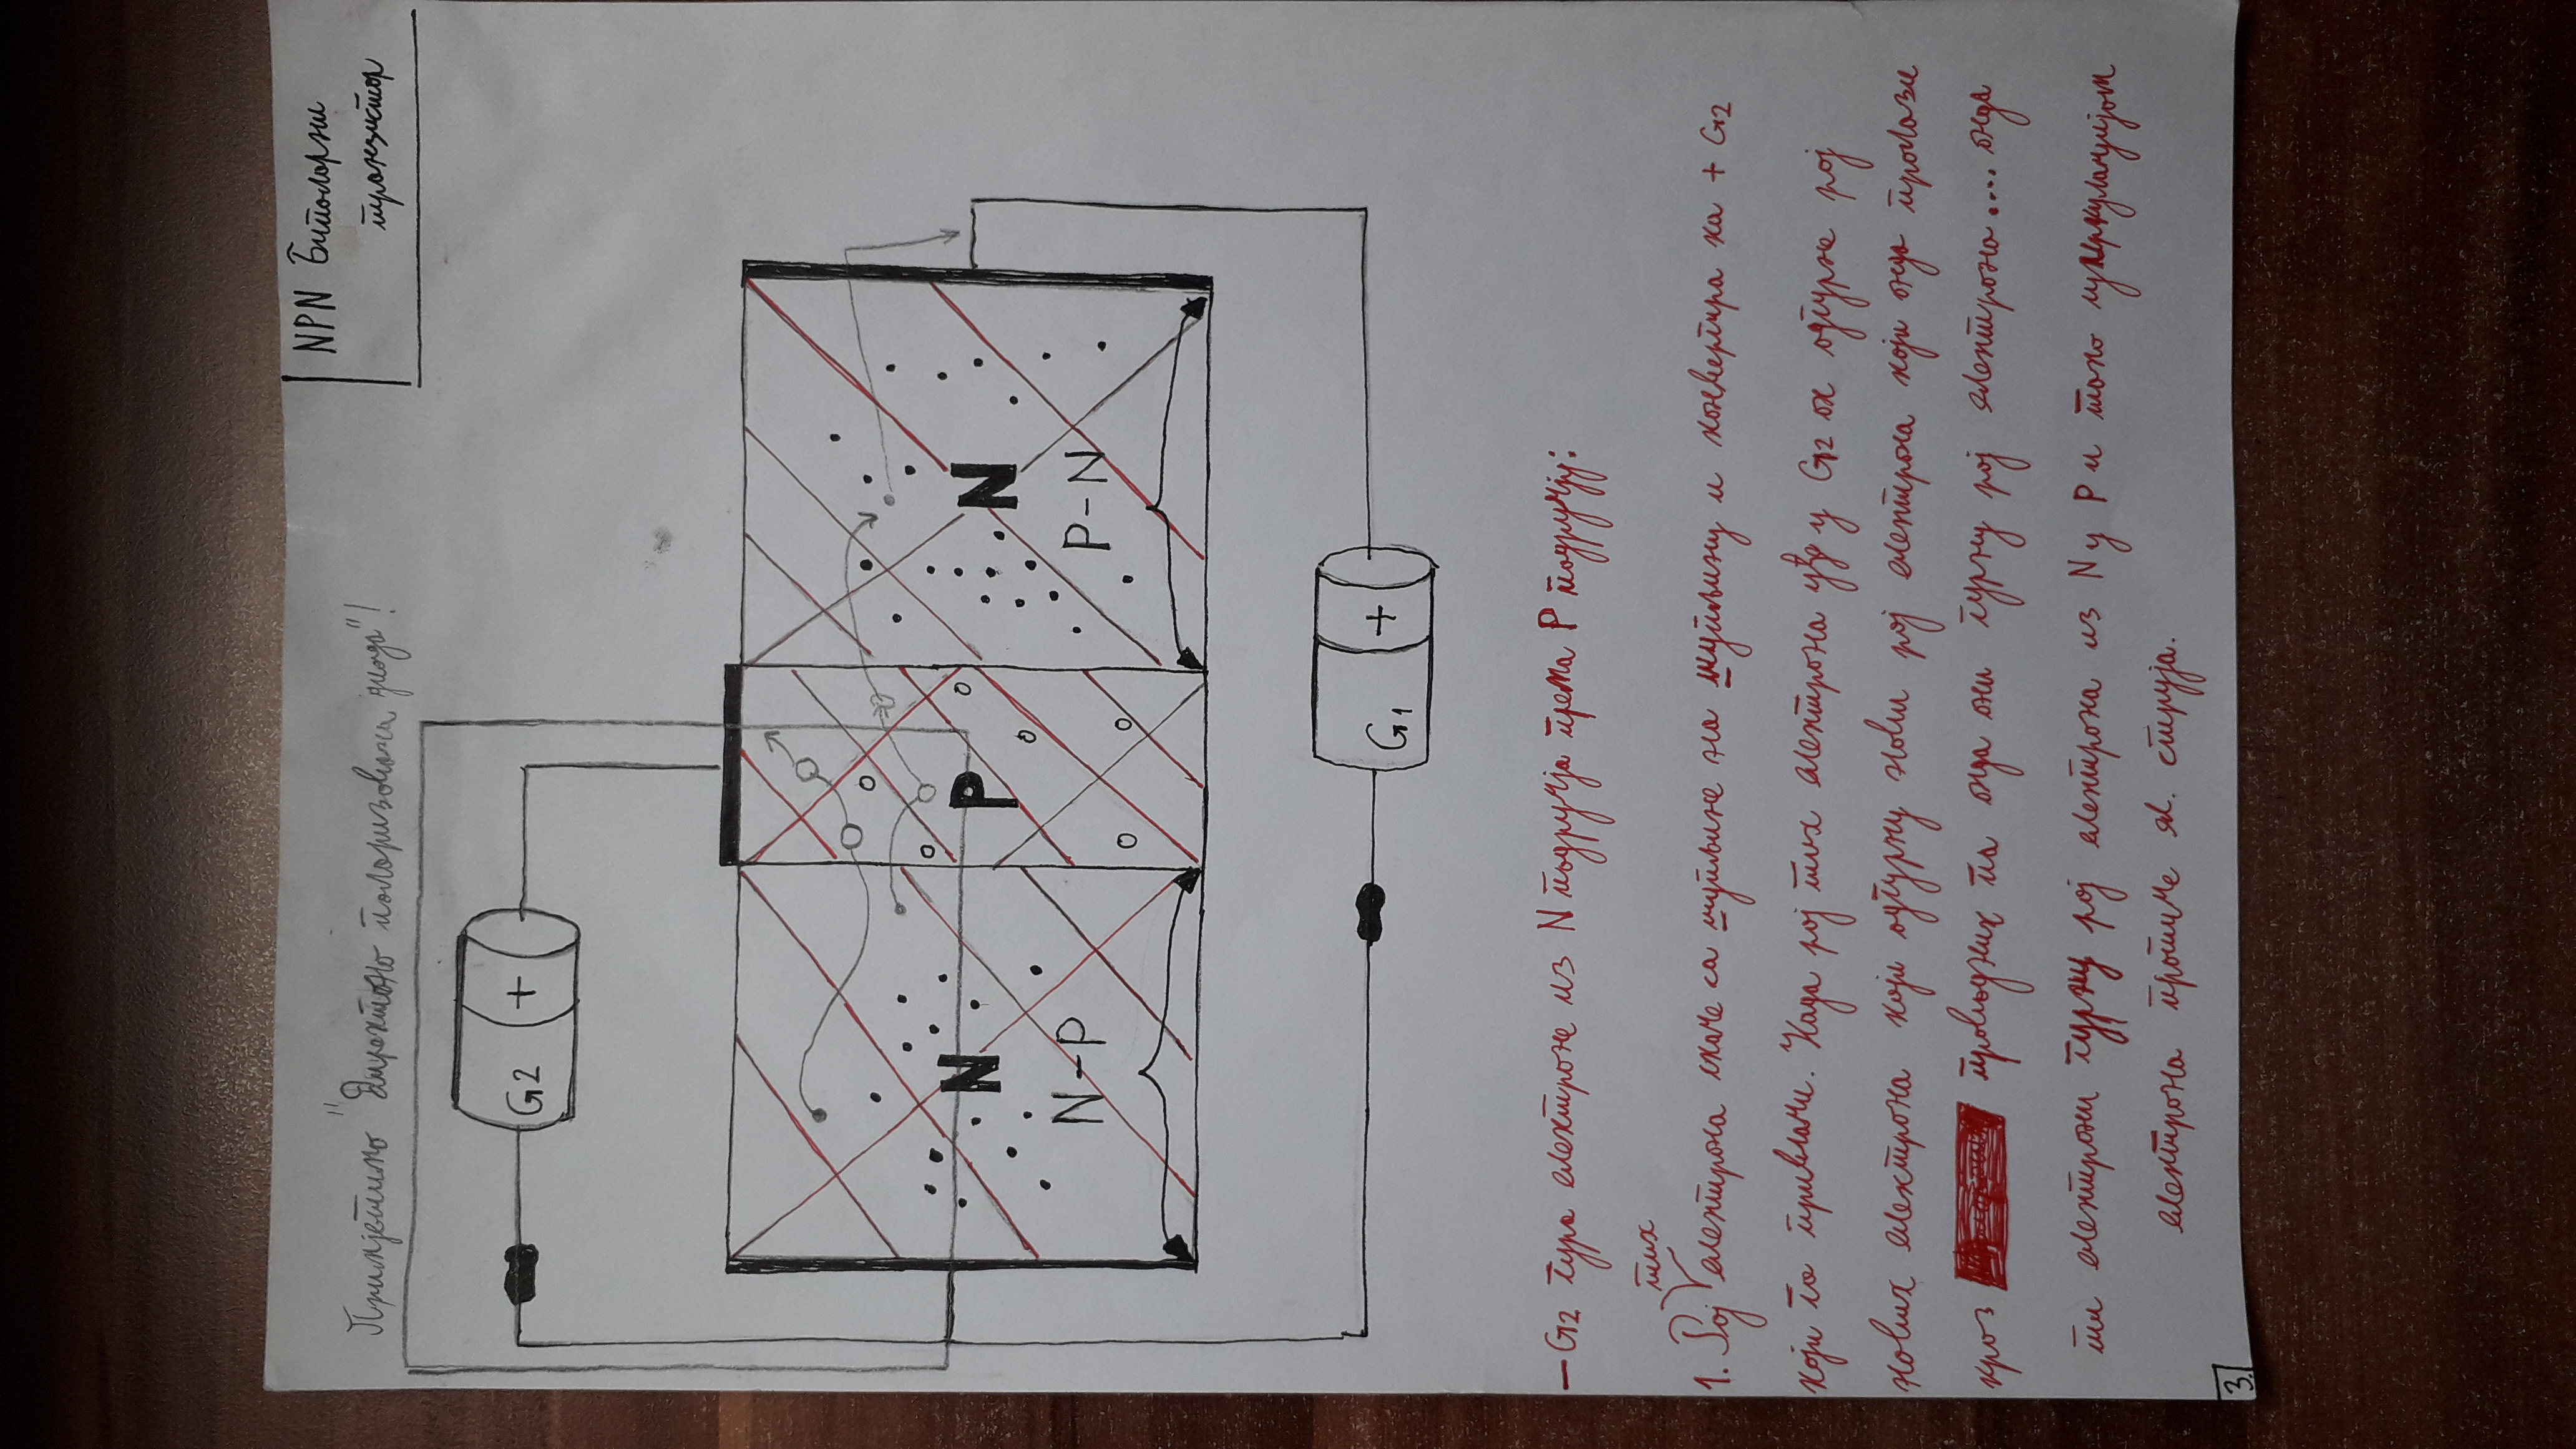 NPN Биполарни
транзистор
Примјетимо "Директоно поларизована диода"!
G2 +
N P N
N-P P-N
G1 +
— G2 гура електроне из N подручја према P подручју:
тих
1. Рој електрона скаче са шупљине на шупљину и конвертира ка + G2
који га привлачи. Када рој тих електрона уђе у G2 он одгурне рој
нових електрона који одгурну нови рој електрона који онда пролази
кроз проводник па онда они гурну рој електрона.... онда
ти електрони гурну рој електрона из N у P и тако циркулацијом
електрона протиче ел. струја.
3.